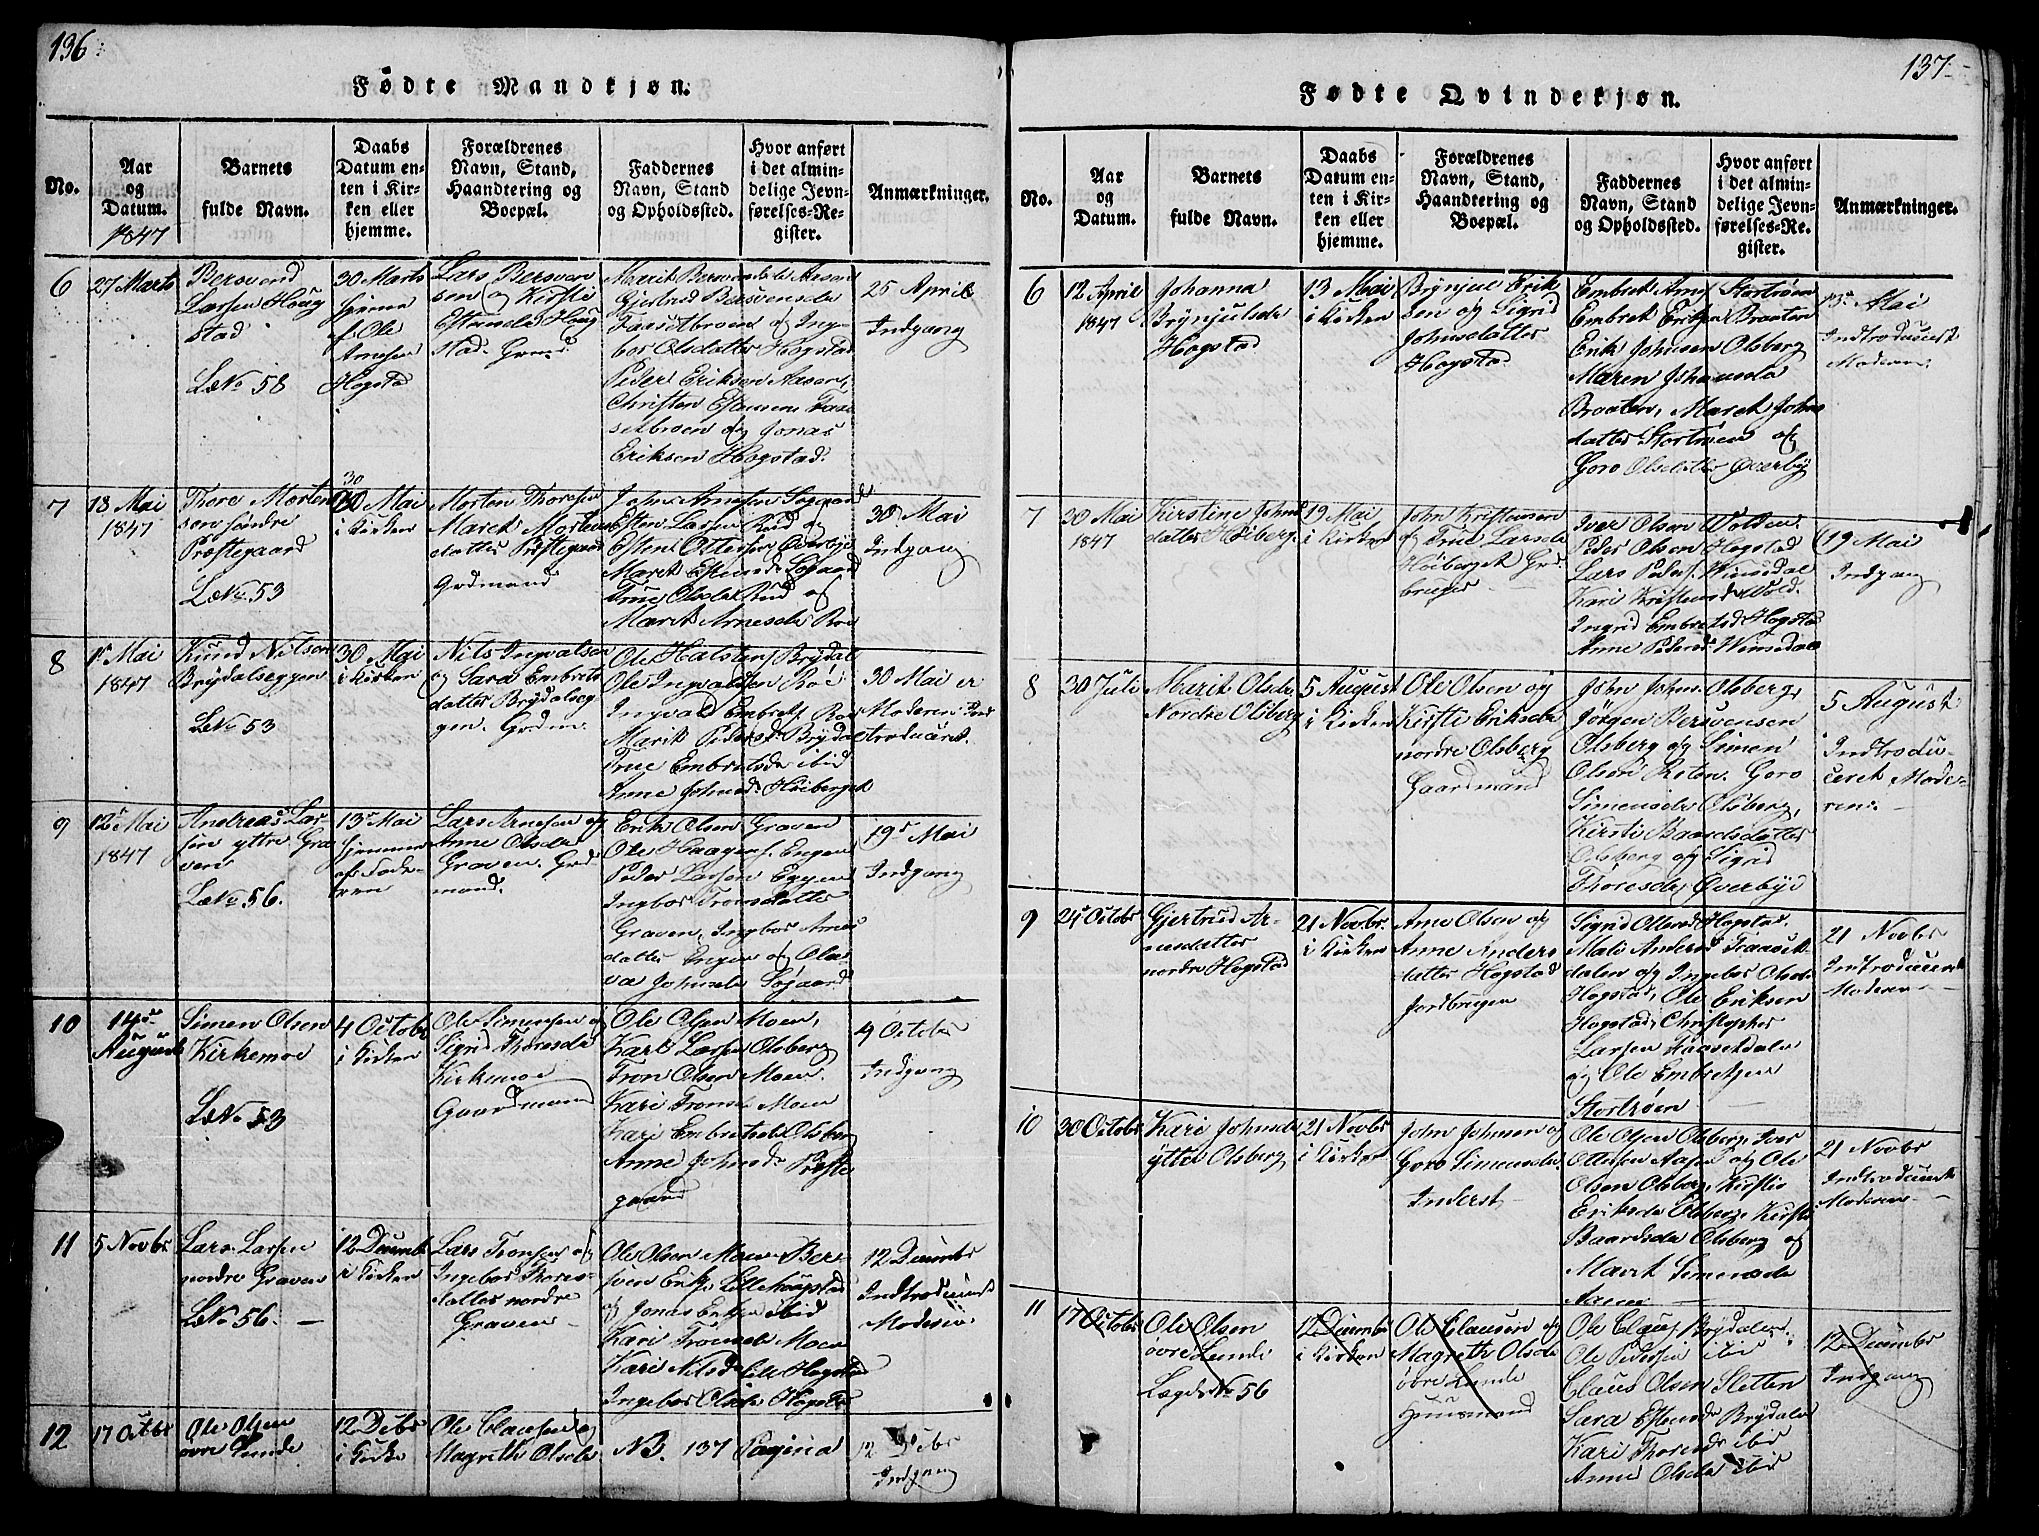 136
Fødte Mandkjøn.
No.
Aar
og
Datum.
1847
Barnets
fulde Navn.
Daabs
Datum en-
ten i Kir-
ken eller
hjemme.
Forældrenes
Navn, Stand,
Haandtering og
Boepæl.
Faddernes
Navn, Stand
og Opholdssted.
Hvor anført
i det almin-
delige Jevn-
førelses-Re-
gister.
Anmærkninger.
6
27 Marts
Bersvend
Larsen Houg
stad
L.No 58
30 Marts
hjemme
f. Ole
Arnesen
Hogstad
Lars Bersven
sen og Kirsti
Estensde Houg
stad. Grmd
Marit Bersvendsde Aasen
Gjertrud Bersvensde
og Ing-
bor Olsdatter Hogstad
Peder Eriksen Aasen,
Christen Estensen
og Jonas
Eriksen Hogstad.
25 April
Indgang
7
18 Mai
1847
Thore Morten
sen søndre
Præstegaard
L.No. 53
30 Mai
i Kirken
Morten Thoresen
Maret Morten
datter Præstegaard
Grdmand
John Arnesen Søgaard
Esten Larsen Rød og
Esten Ottersen Øverbye
Maret Estensde Søgaard
True Olsde Rød og
Marit Arnesde Roe
30 Mai
Indgang
8
1s Mai
1847
Knud Nilsen
Brydalseggen
L.No 53
30 Mai
i Kirken
Nils Ingvalsen
og Sara Embrets
datter Brydalseg
gen. Grdm.
Ole Halstens. Brydal
Ole Ingvaldsen Roe
Ingvald Embrets. Roe
Marit Pedersd Brydal
True Embretsde ibid
Anne Johnsd. Høiberget
30 Mai er
Moderen Ind
troduceret.
9
12s Mai
1847
Andreas Lar
sen yttre Gra
ven
L.No 56.
13s Mai
hjemme
af Fade-
ren
Lars Arnesen og
Anne Olsde
Graven. Grd
mand.
Erik Olsen Graven
Ole Haagens. Engen
Peder Larsen Eggen
Ingbor Tronsdatter
Graven, Ingbor Arnes
datter Engen og Ole-
va Johnsde Søgaard
19s Mai
Indgang
10
14s
August
Simen Olsen
Kirkemoe
L.No 53
4 Octobr
i Kirken
Ole Simensen og
Sigrid Thoresde
Kirkemoe
Gaardmand
Ole Olsen Moen,
Karl Larsen Olsberg
Tron Olsen Moen.
Kari Tronsde Moen
Kari Embretsde Olsberg
Anne Johnsd. Præste
gaard
4 October
Indgang
11
5 Novbr
Lars Larsen
nordre Graven
L.No 56.
12 Decembr
i Kirken
Lars Tronsen og
Ingebor Thores-
datter nordre
Graven
Ole Olsen Moen Ber-
sven Eriks. Lille Hougstad
og Jonas Eriksen ibid
Kari Tronsde Moen
Kari Nilsde lille Hogstad
Ingebor Olsde Hogstad
12 Decembr
Indtroduceret
Moderen
12
17 Octbr
Ole Olsen
øvre Lunde
12 Decbr
i Kirke
Ole Clausen og
Magreth Olsde
NB. 137 Pagina
12 Decbr
Indgang
137.
Fødte Qvindekjøn.
No.
Aar
og
Datum.
Barnets
fulde Navn.
Daabs
Datum en-
ten i Kir-
ken eller
hjemme.
Forældrenes
Navn, Stand,
Haandtering og
Boepæl.
Faddernes
Navn, Stand
og Opholdssted.
Hvor anført
i det almin-
delige Jevn-
førelses-Re-
gister.
Anmærkninger.
6
12 April
1847
Johanna
Brynjulsde
Hogstad
13 Mai
i Kirken
Brynjul Erik
sen og Sigrid
Johnsdatter
Hogstad
Embret Arnes. Stortrøen
Embret Eriksen Braaten
Erik Johnsen Olsberg
Maren Johnsde
Braaten, Maret Johns
datter Stortrøen og
Goro Olsdatter Øverbye
13s Mai
Indtroduceret
Moderen.
7
30 Mai
1847
Kirstine Johns
datter Høiberget
19 Mai
i Kirken
John Kristensen
og True Larsde
Høiberget Grd
bruger
Iver Olsen Wolden.
Peder Olsen Hogstad
Lars Peders. Wensedal
Kari Kristensde Wold.
Ingrid Embretsd Hogstad
Anne Pedersd Wensedal
19 Mai
Indgang
8
30 Juli
Marit Olsde
Nordre Olsberg
5 August
i Kirken
Ole Olsen og
Kirsti Eriksde
nordre Olsberg
Gaardmand
John Johns. Olsberg,
Jørgen Bersvensen
Olsberg og Simen
Olsen Reten. Goro
Simensde Olsberg,
Kirsti Baardsdatter
Olsberg og Sigrid
Thoresde Øverbye
5 August
Indtrodu-
ceret Mode-
ren.
9
24s Octobr
Gjertrud Ar-
nesdatter
nordre Hogstad
21 Novbr.
i Kirken
Arne Olsen og
Anne Anders
datter Hogstad
Jordbruger
Sigrid Olsensd Hogstad.
Mali Andersd
dalen og Ingebor Olsde
Hogstad, Ole Eriksen
Hogstad, Christopher
Larsen
og Ole Embretsen
Stortrøen
21 Novbr
Indtroduceret
Moderen
10
30 Octobr
Kari Johnsde
yttre Olsberg
21 Novbr
i Kirken
John Johnsen og
Goro Simensde
Inderst
Ole Olsen Olsberg, Iver
Ottersen Aasen og Ole
Olsen Olsberg, Kirsti
Eriksde Olsberg, Kirsti
Baardsde Olsberg og
Marit Simensde
Aasen
21 Novbr
Indtroduceret
Moderen
11
17 Octobr
Ole Olsen
øvre Lunde
Lægds No 56
12 Decembr
i Kirken
Ole Clausen og
Magreth Olsde
øvre Lunde
Huusmand
Ole Claus. Brydalen.
Ole Pedersen ibid
Claus Olsen Sletten
Sara Estensde Brydalen
Kari Thoresde ibid
Anne Olsde ibid
12 Decembr
Indgang